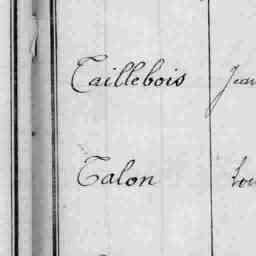 Taillebois Jean
Talon